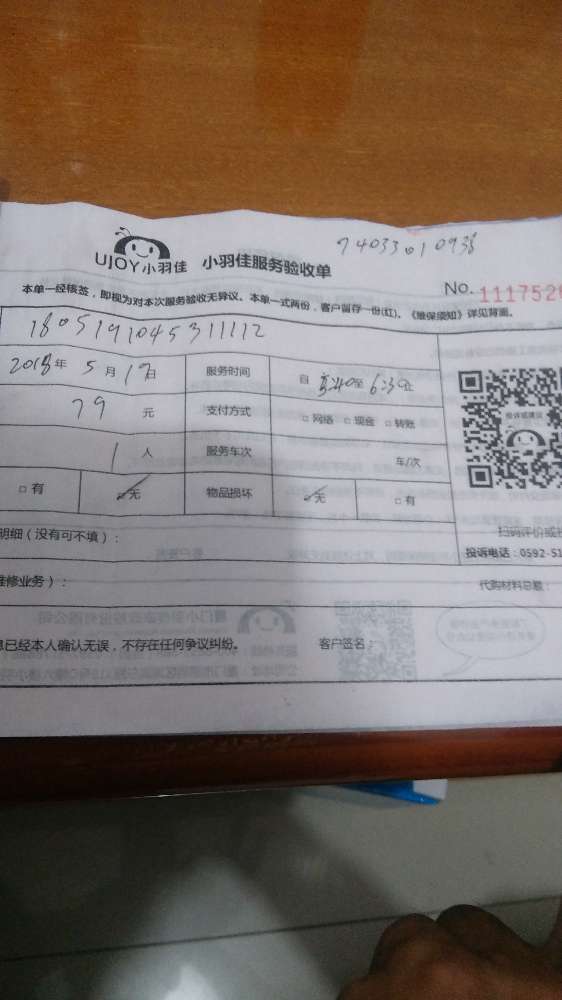 UJOY小羽佳 小羽佳服务验收单
No. 1117520
本单一经核签，即视为对本次服务验收无异议。本单一式两份，客户留存一份(红)。《维保须知》详见背面。
1805191045311112
2018年 5月1 日 服务时间 自 至 6:30止
79 元 支付方式 □网络 □现金 □转账
1 人 服务车次 车/次
□有 □无 物品损坏 □无 □有
投诉或建议
明细（没有可不填）：
扫码评价或投
投诉电话：0592-51
维修业务）：
代购材料总额：
息已经本人确认无误，不存在任何争议纠纷。 客户签名：